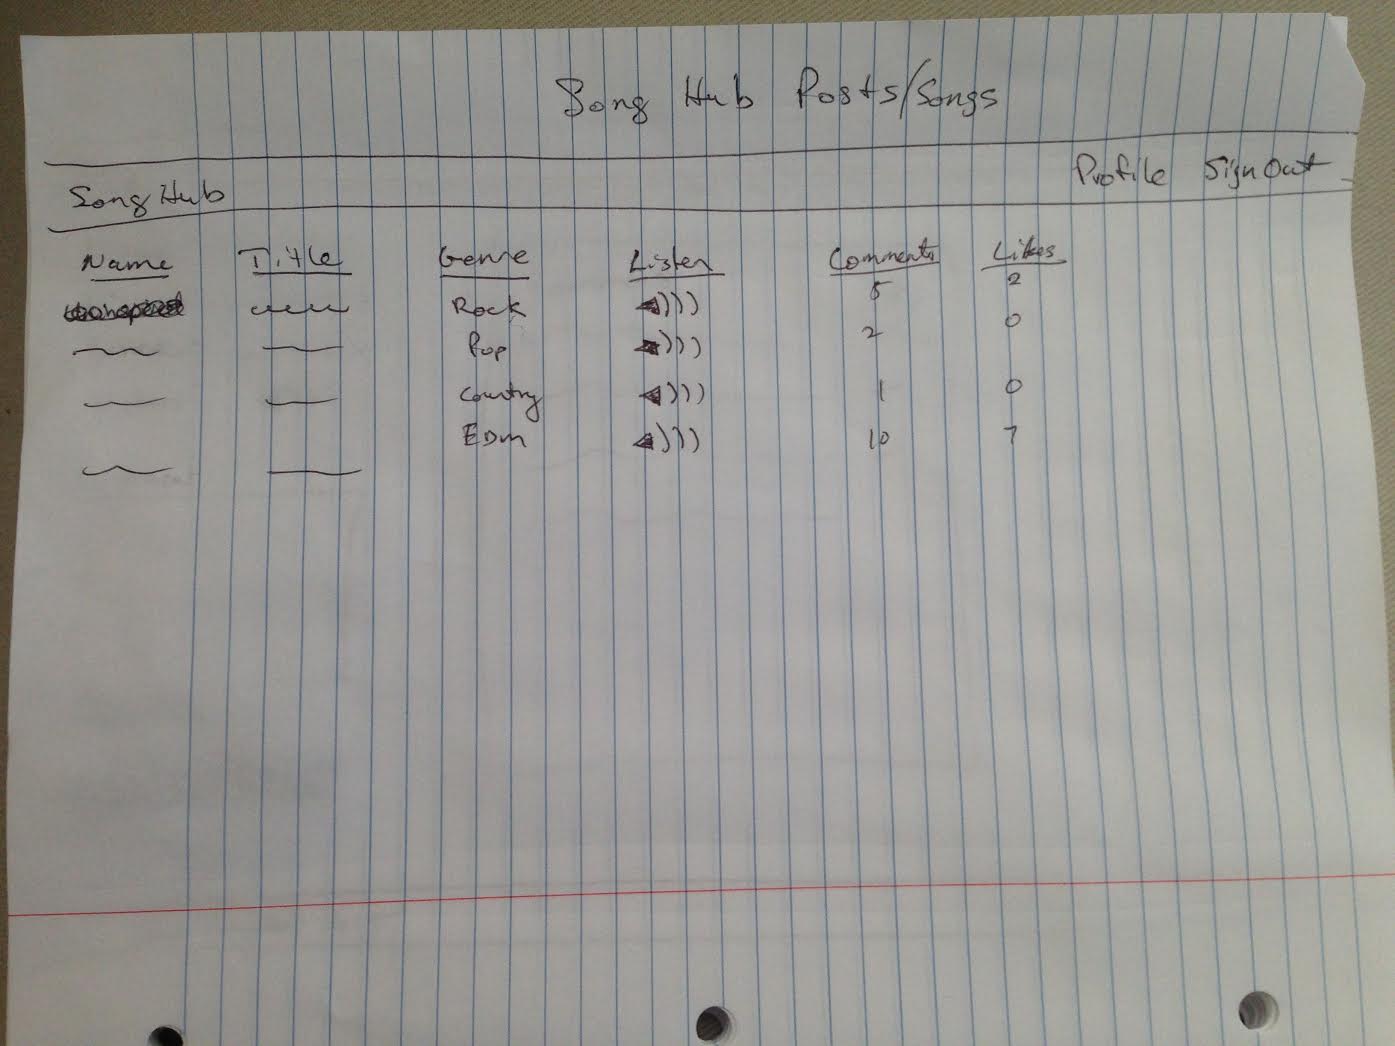 Song Hub Posts/Songs
Song Hub Profile Sign Out
Name Title Genre Listen Comments Likes
Rock 5 2
Pop 2 0
Country 1 0
EDM 10 7